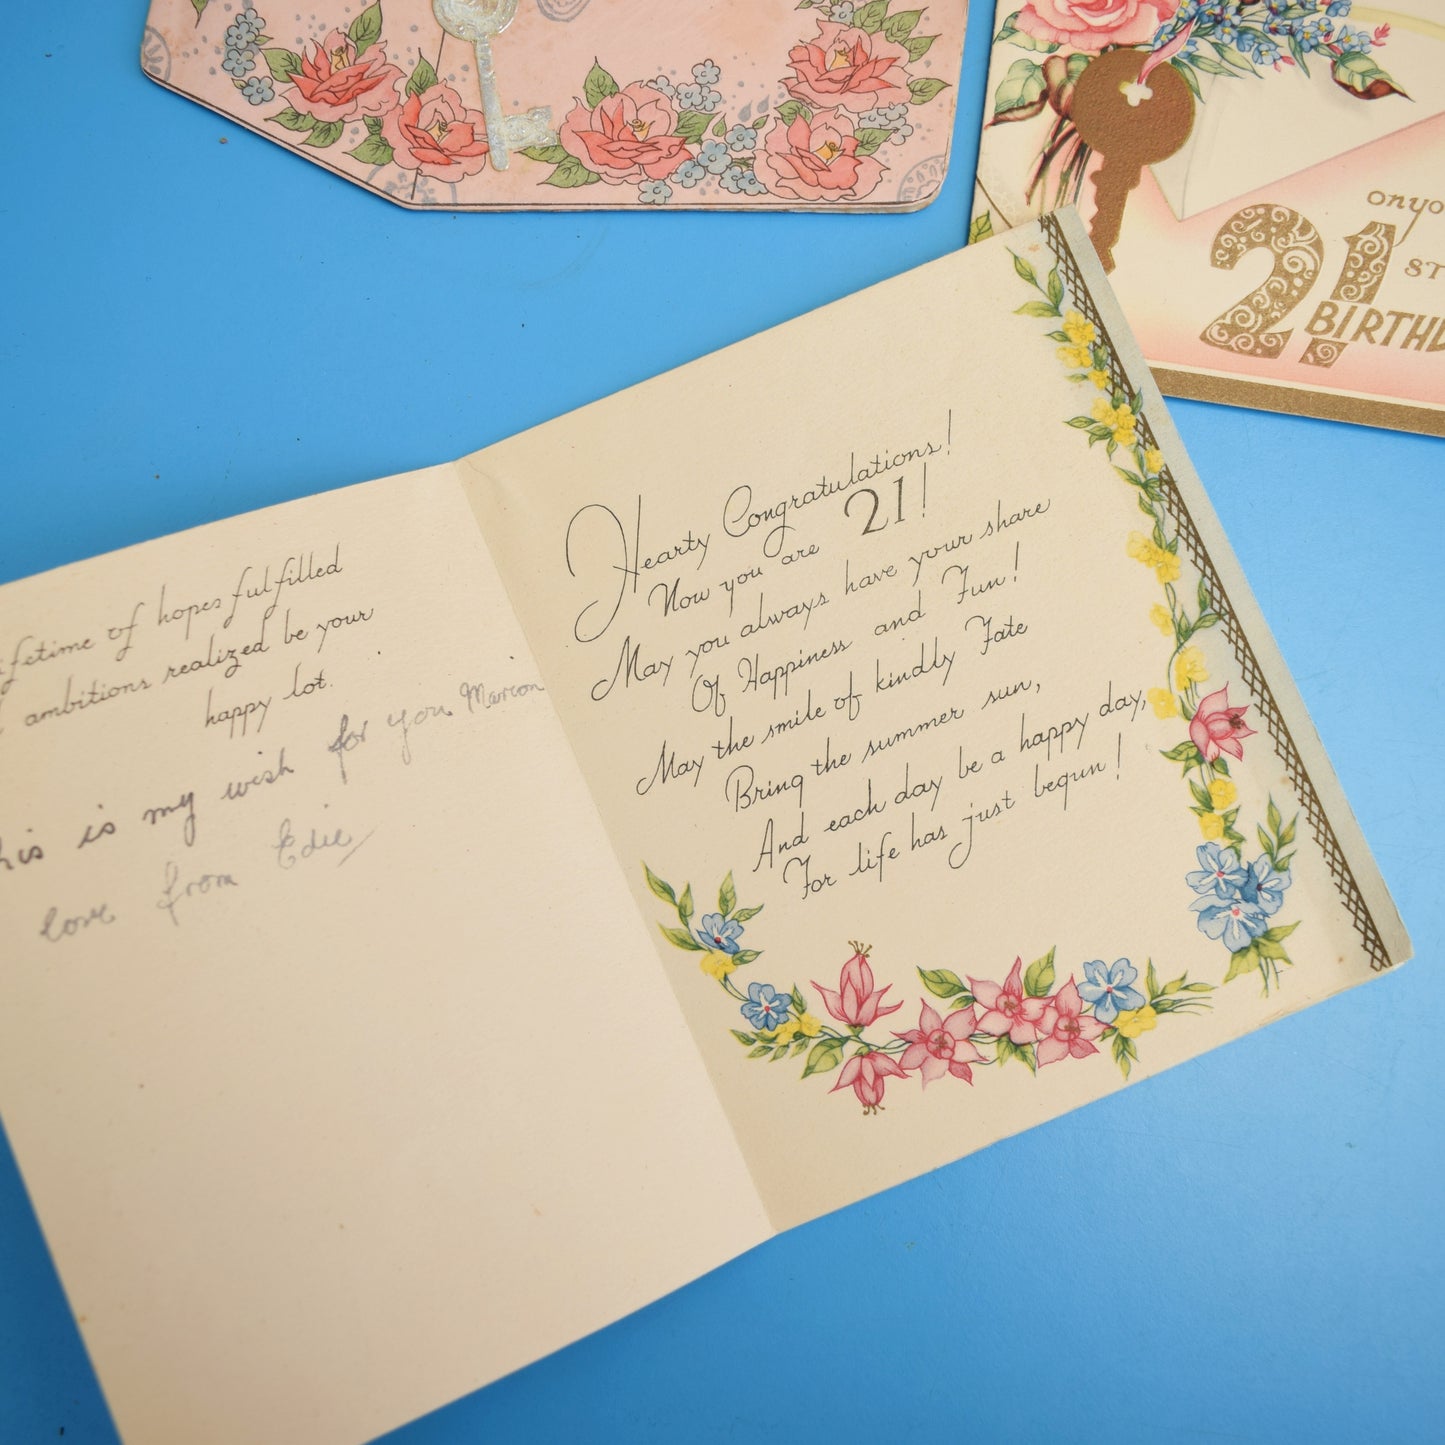 onyo
21
ST
BIRTHD
ifetime of hopes fulfilled
ambitions realized be your
happy lot.
his is my wish for you Marion
love from Edie
Hearty Congratulations!
Now you are 21!
May you always have your share
Of Happiness and Fun!
May the smile of kindly Fate
Bring the summer sun,
And each day be a happy day,
For life has just begun!